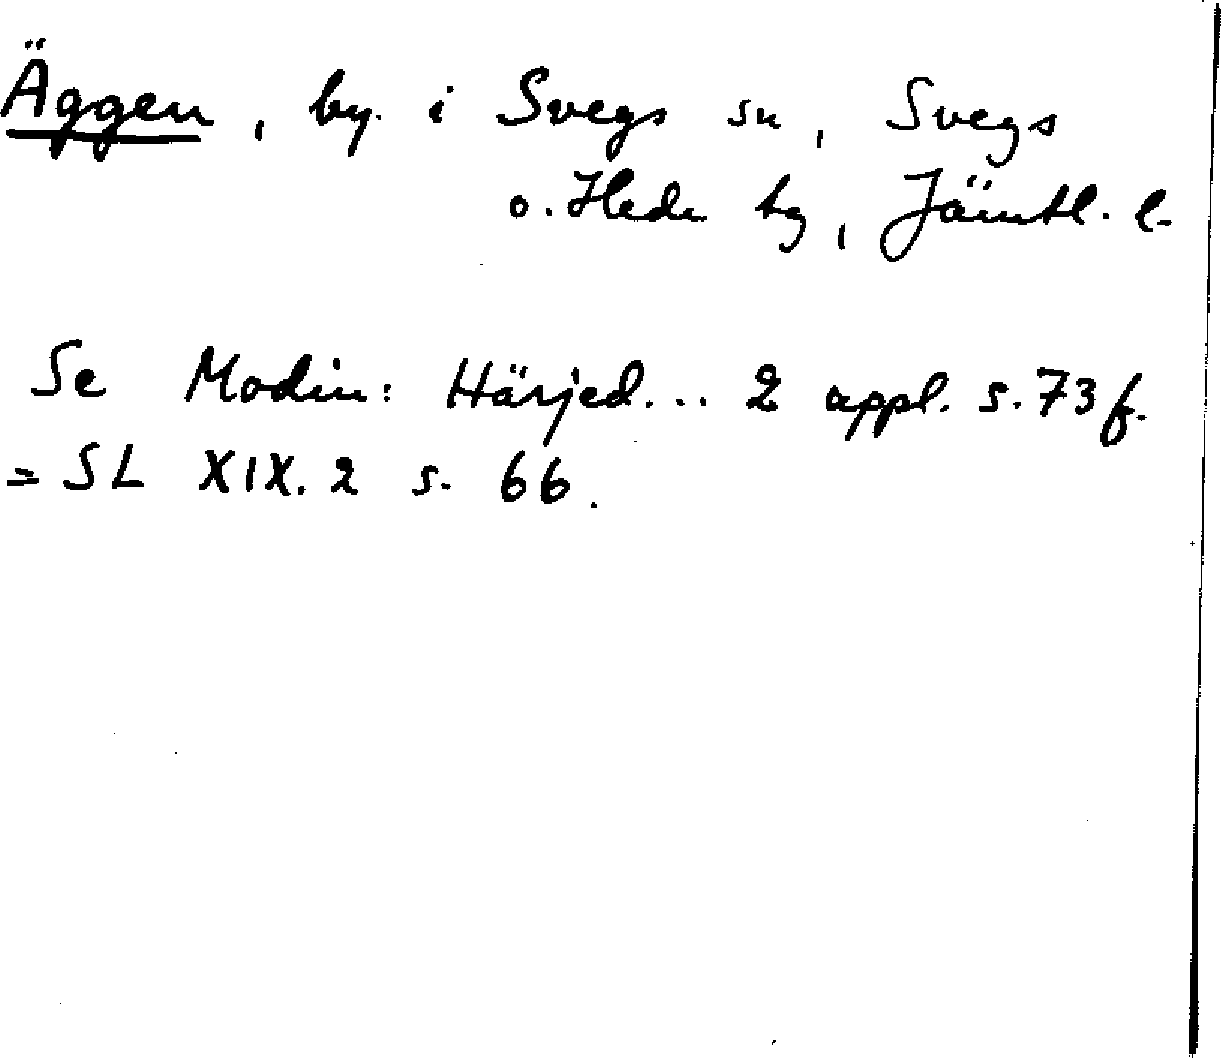 Äggen, by. i Svegs sn, Svegs
o. Hede tg, Jämtl. l.
Se Modin: Härjed... 2 uppl. s. 73 f.
= SL XIX. 2 s. 66.